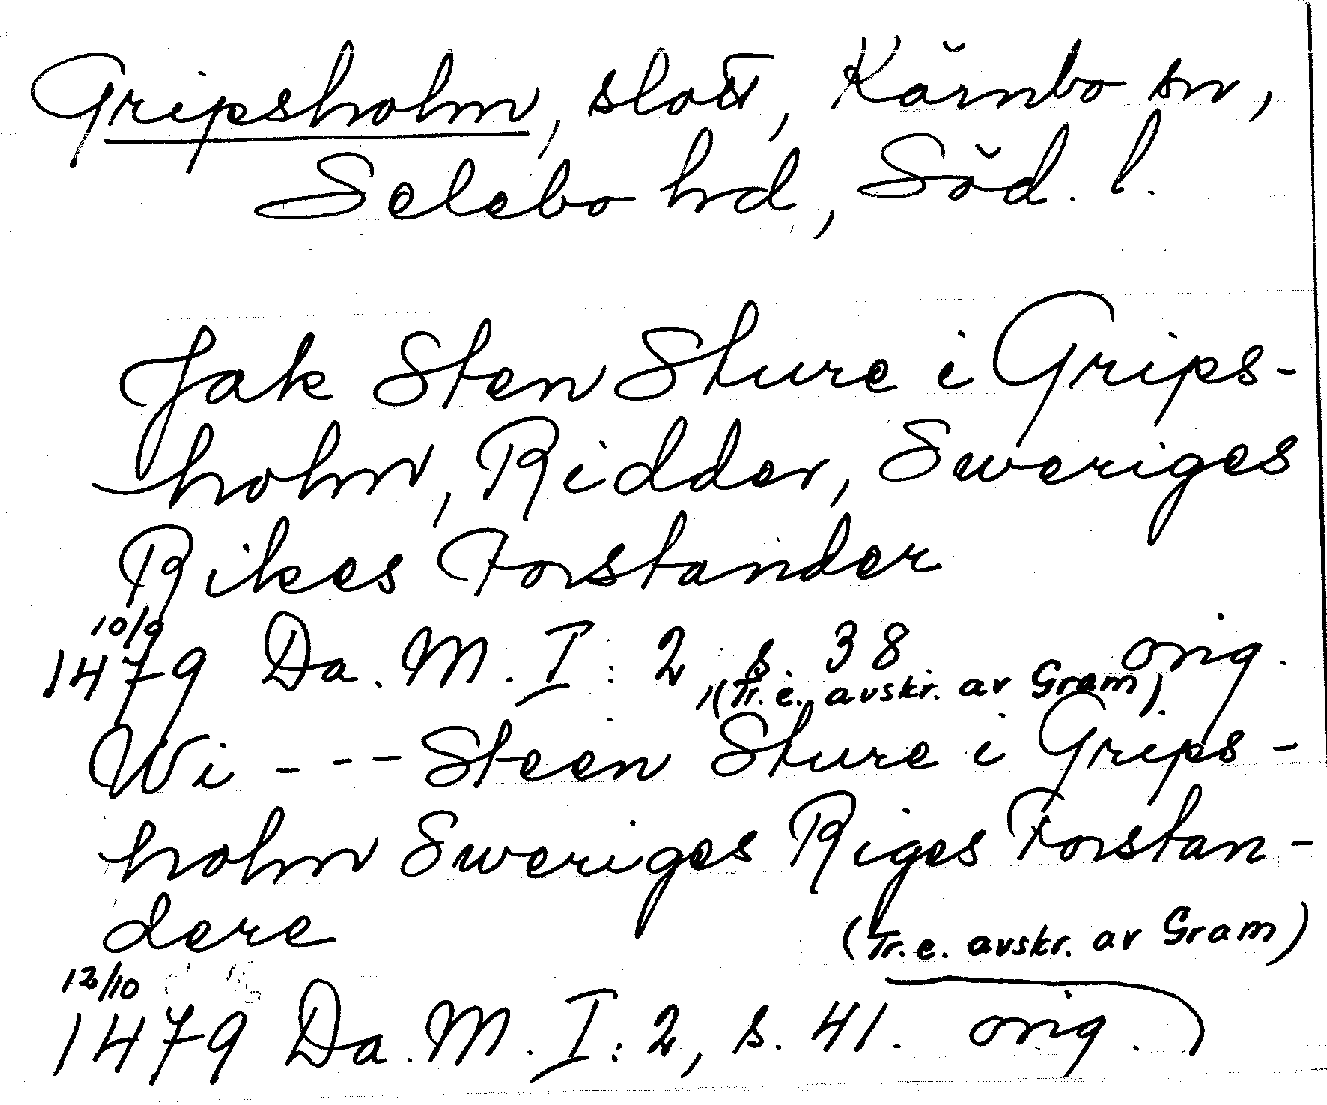 Gripsholm, slott, Kärnbo sn,
Selebo hd, Söd. l.
Jak Sten Sture i Grips-
holm, Ridder, Sweriges
Rikes Forstander
10/9
1479 Da. M. I: 2 s. 38 orig.
(Tr. e. avskr. av Gram)
Wi --- Steen Sture i Grips-
holm Sweriges Riges Forstan-
dere
(Tr. e. avskr. av Gram)
12/10
1479 Da. M. I: 2, s. 41. orig.